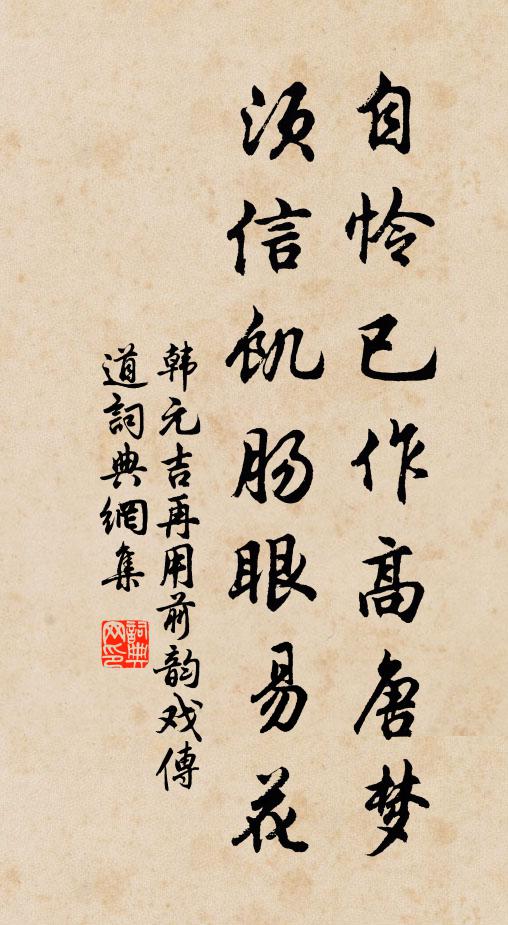 自怜已作高唐梦
须信飢肠眼易花
韩元吉再用前韵戏傅
道詞典網集
詞典网印